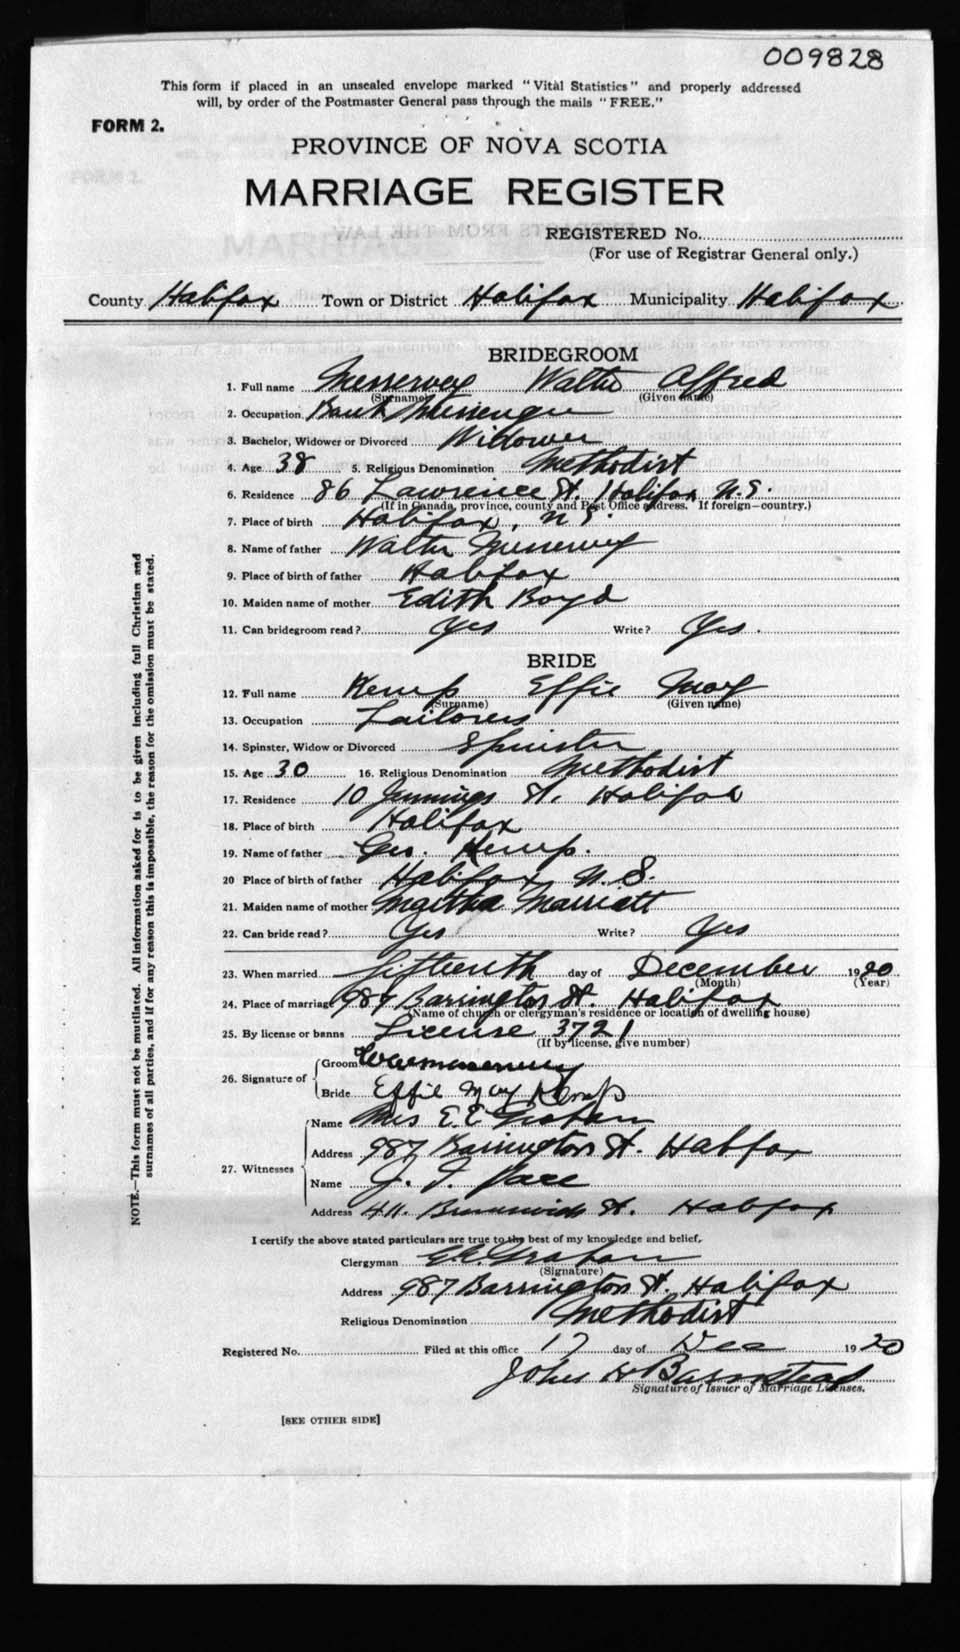 009828
This form if placed in an unsealed envelope marked "Vital Statistics" and properly addressed
will, by order of the Postmaster General pass through the mails "FREE."
FORM 2.
PROVINCE OF NOVA SCOTIA
MARRIAGE REGISTER
REGISTERED No.
(For use of Registrar General only.)
County Halifax Town or District Halifax Municipality Halifax
BRIDEGROOM
1. Full name Messervey Walter Alfred
(Surname) (Given name)
2. Occupation Bank Messenger
3. Bachelor, Widower or Divorced Widower
4. Age 38 5. Religious Denomination Methodist
6. Residence 86 Lawrence St. Halifax N.S.
(If in Canada, province, county and Post Office address. If foreign—country.)
7. Place of birth Halifax, N.S.
8. Name of father Walter Messervey
9. Place of birth of father Halifax
10. Maiden name of mother Edith Boyd
11. Can bridegroom read? Yes Write? Yes.
BRIDE
12. Full name Kemp Effie May
(Surname) (Given name)
13. Occupation Tailoress
14. Spinster, Widow or Divorced Spinster
15. Age 30 16. Religious Denomination Methodist
17. Residence 10 Jennings St. Halifax
18. Place of birth Halifax
19. Name of father Geo. Kemp.
20 Place of birth of father Halifax N.S.
21. Maiden name of mother Martha Marriott
22. Can bride read? Yes Write? Yes
23. When married fifteenth day of December 1920
(Month) (Year)
24. Place of marriage 987 Barrington St. Halifax
(Name of church or clergyman's residence or location of dwelling house)
25. By license or banns License 3721
(If by license, give number)
26. Signature of Groom
Bride Effie May Kemp
27. Witnesses Name Mrs E. E. Graham
Address 987 Barrington St. Halifax
Name J. T. Pace
Address 411. Brunswick St. Halifax
I certify the above stated particulars are true to the best of my knowledge and belief.
Clergyman E.E. Graham
(Signature)
Address 987 Barrington St. Halifax
Religious Denomination Methodist
Registered No. Filed at this office 17 day of Dec 1920
John H Barnstead
Signature of Issuer of Marriage Licenses.
[SEE OTHER SIDE]
NOTE.—This form must not be mutilated. All information asked for is to be given including full Christian and
surnames of all parties, and if for any reason this is impossible, the reason for the omission must be stated.